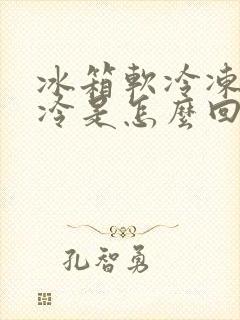 冰箱軟冷凍
冷是怎麼回
孔智勇